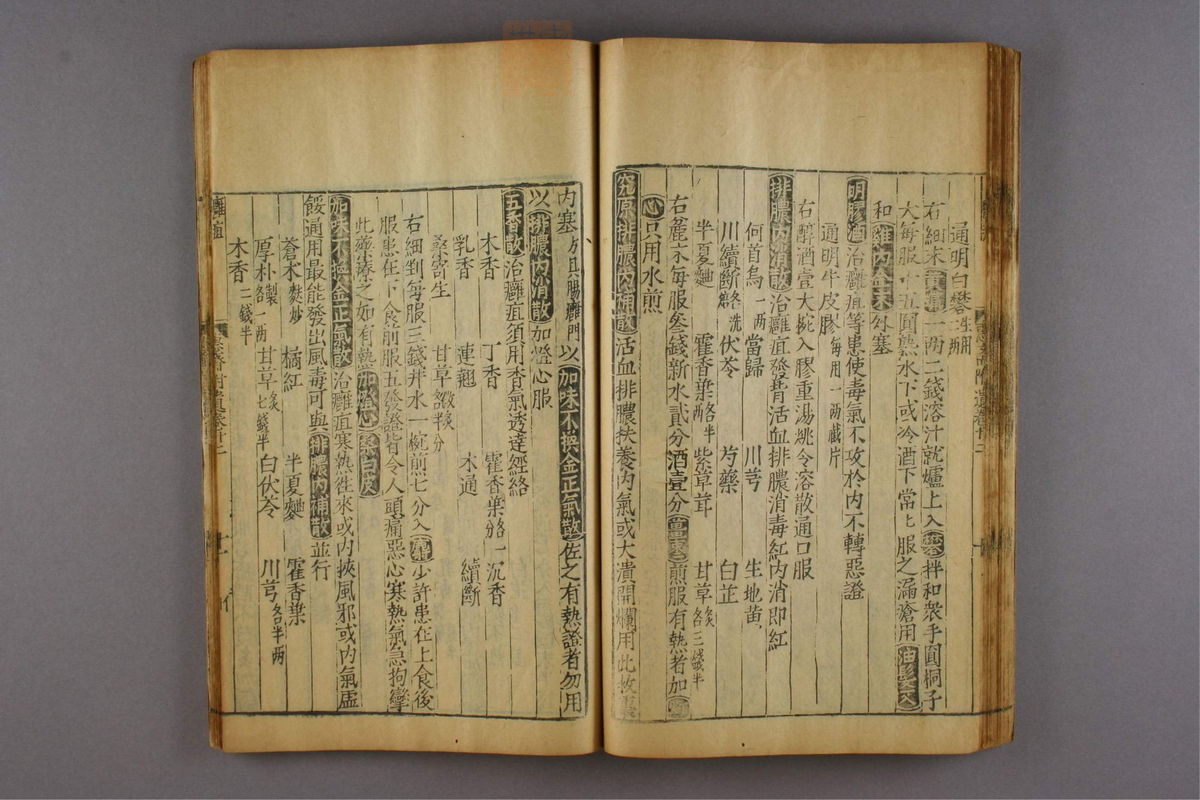 通明白礬
右細末黃蠟一兩二錢溶汁就爐上入礬拌和衆手圓桐子
大每服十五圓熱水下或冷酒下常上服之漏瘡用油髮灰
和雞內金末外塞
明膠酒治癰疽等患使毒氣不攻於內不轉惡證
通明牛皮膠每用一兩截片
右醇酒壹大椀入膠重湯姚令溶散通口服
排膿內消散治癰疽發背活血排膿消毒紅內消即紅
何首烏一兩 當歸 川芎 生地黃
川續斷洗 伏苓 芍藥 白芷
半夏麯 霍香葉各半兩 紫草茸 甘草炙各三錢半
右麄末每服叄錢新水貳分酒壹分薑棗煎服有熱者加
心只用水煎
究原排膿內補散活血排膿扶養內氣或大潰開爛用此
內塞方具腸癰門以加味不換金正氣散佐之有熱證者勿用
以排膿內消散加燈心服
五香散治癰疽須用香氣透達經絡
木香 丁香 霍香葉各一分 沉香
乳香 連翹 木通 續斷
桑寄生 甘草微炙各半分
右細剉每服三錢井水一椀煎七分入少許患在上食後
服患在下食前服五發證皆令人頭痛惡心寒熱氣急拘攣
此藥療之如有熱加燈心桑白皮
加味不換金正氣散治癰疽寒熱徃來或內挾風邪或內氣虛
餒通用最能發出風毒可與排膿內補散並行
蒼朮炒 橘紅 半夏麯 霍香葉
厚朴製各一兩 甘草炙七錢半 白伏苓 川芎各半兩
木香二錢半
癰疽